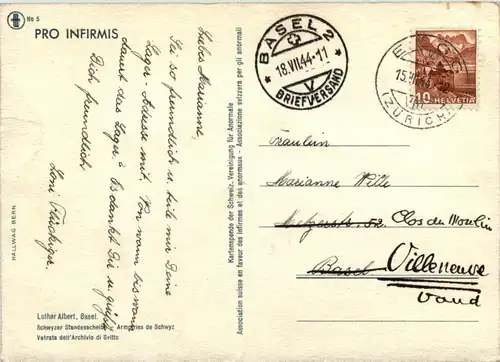 No 5
PRO INFIRMIS
Liebes Marianne,
Sei so freundlich u. teile mir Deine
Lager-Adresse mit. Von wann bis wann
dauert das Lager? Es dankt Dir u. grüsst
Dich freundlich
HALLWAG BERN
Lothar Albert, Basel
Schwyzer Standesscheibe - Armoiries de Schwyz
Vetrata dell'Archivio di Svitto
Kartenspende der Schweiz. Vereinigung für Anormale
Association suisse en faveur des infirmes et des anormaux - Associazione svizzera per gli anormali
BASEL 2
18.VII.44-11
V
BRIEFVERSAND
(ZÜRICH)
10 HELVETIA
Fräulein
Marianne Wille
Metzgerstr. 52. Clos du Moulin
Basel Villeneuve
Vaud